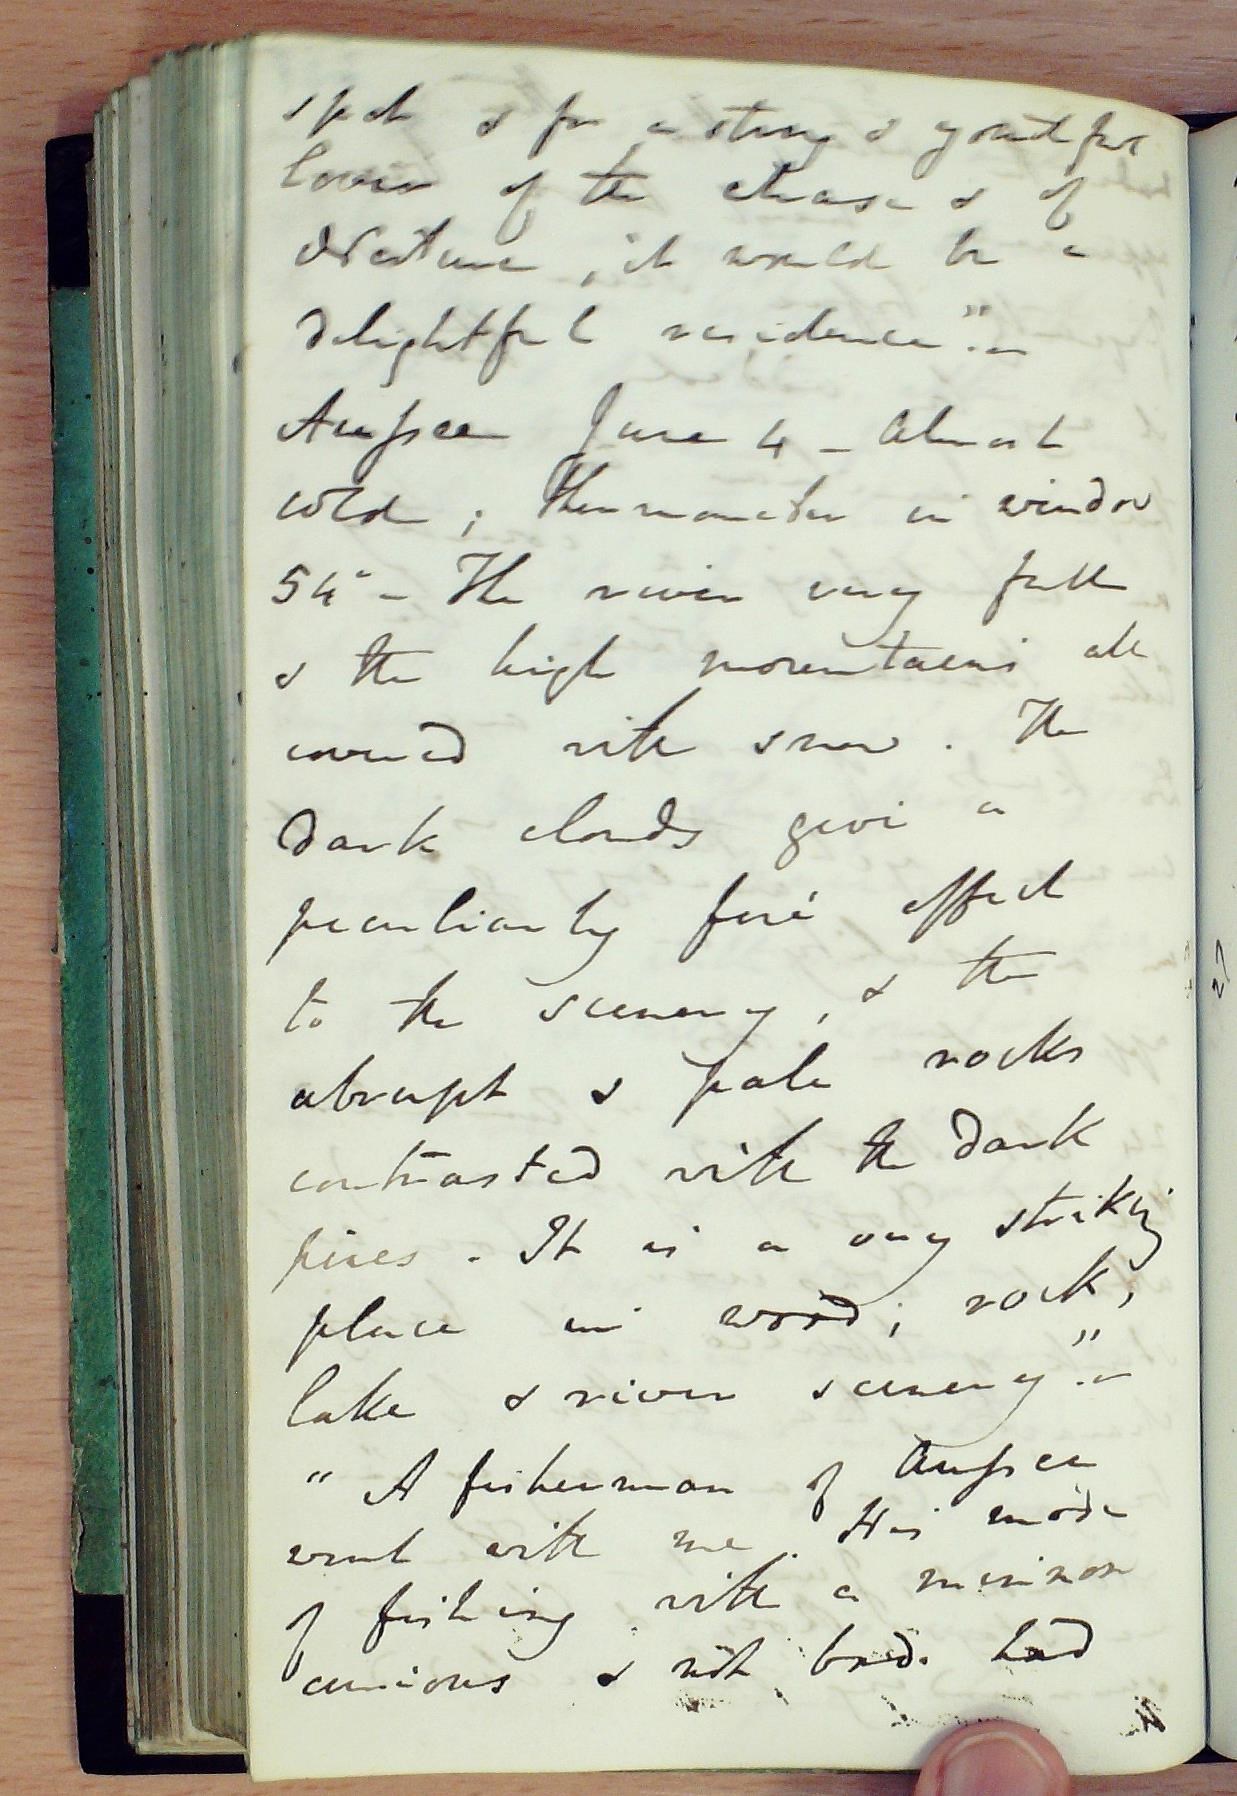 spot & for a strong & youthful
lover of the chase & of
Nature, it would be a
delightful residence".–
Aussee June 4 – Almost
cold; thermometer in window
54° – The river very full
& the high mountains all
covered with snow. The
dark clouds give a
peculiarly fine effect
to the scenery, & the
abrupt & pale rocks
contrasted with the dark
pines. It is a very striking
place in wood, rock,
lake & river scenery".–
"A fisherman of Aussee
went with me. His mode
of fishing with a minnow
curious & not bad. had